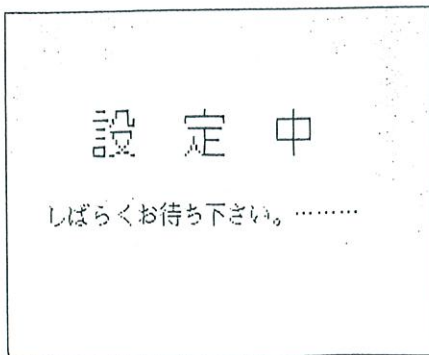 設 定 中
しばらくお待ち下さい。………